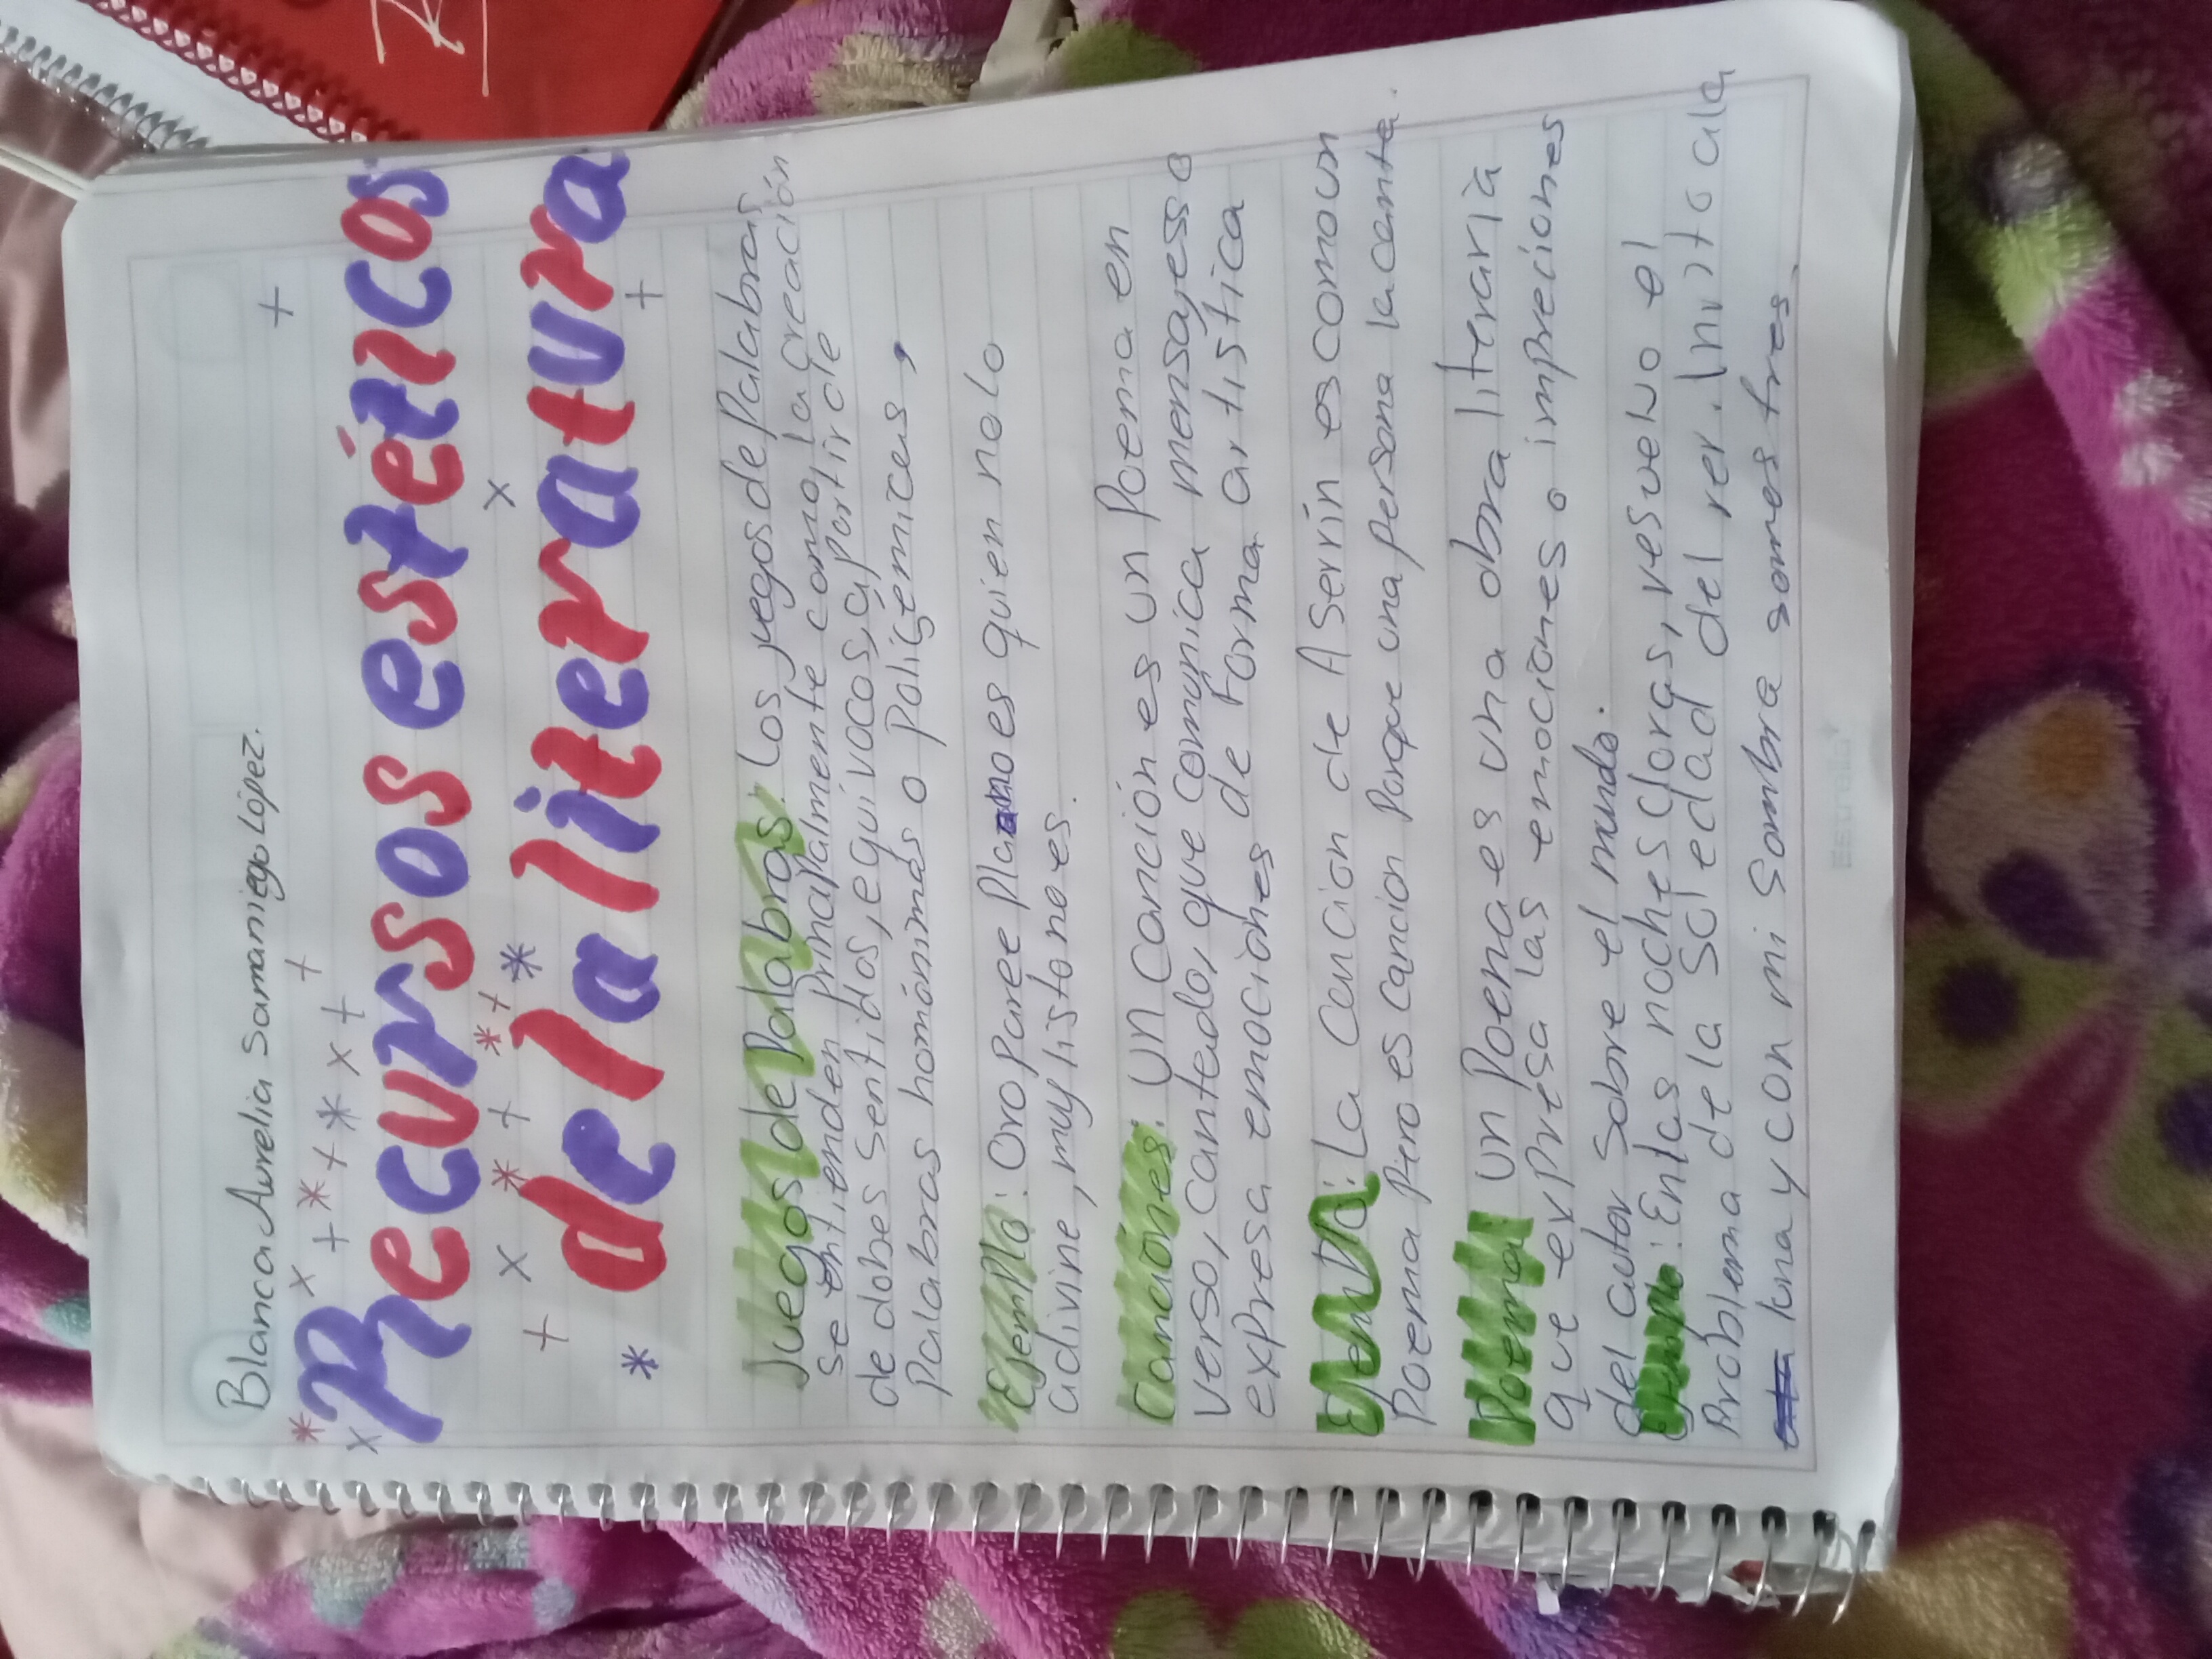 Blanca Aurelia Samaniego López.
Recursos estéticos
de la literatura
Juegos de Palabras: Los juegos de Palabras
se entienden principalmente como, la creación
de dobes sentidos, equivocos, a partir de
Palabras homónimas o poligemicas,
Ejemplo: Oro Paree Plano es quien no lo
adivine, muy listo no es.
Canciónes: Un Canción es un Poema en
verso, canteado, que comunica mensayes o
expresa emociones de Forma artistica
Ejemplo: La Cancion de Aserrín es como un
Poema Pero es Cancion Porque una persona la canta.
Poema: Un Poema es una obra literaria
que exPresa las emociones o impreciones
del autor sobre el mundo.
Ejemplo: En las noches claras, resuelvo el
Problema de la Soledad del ser. Invito a la
luna y con mi Sombra somos tres.